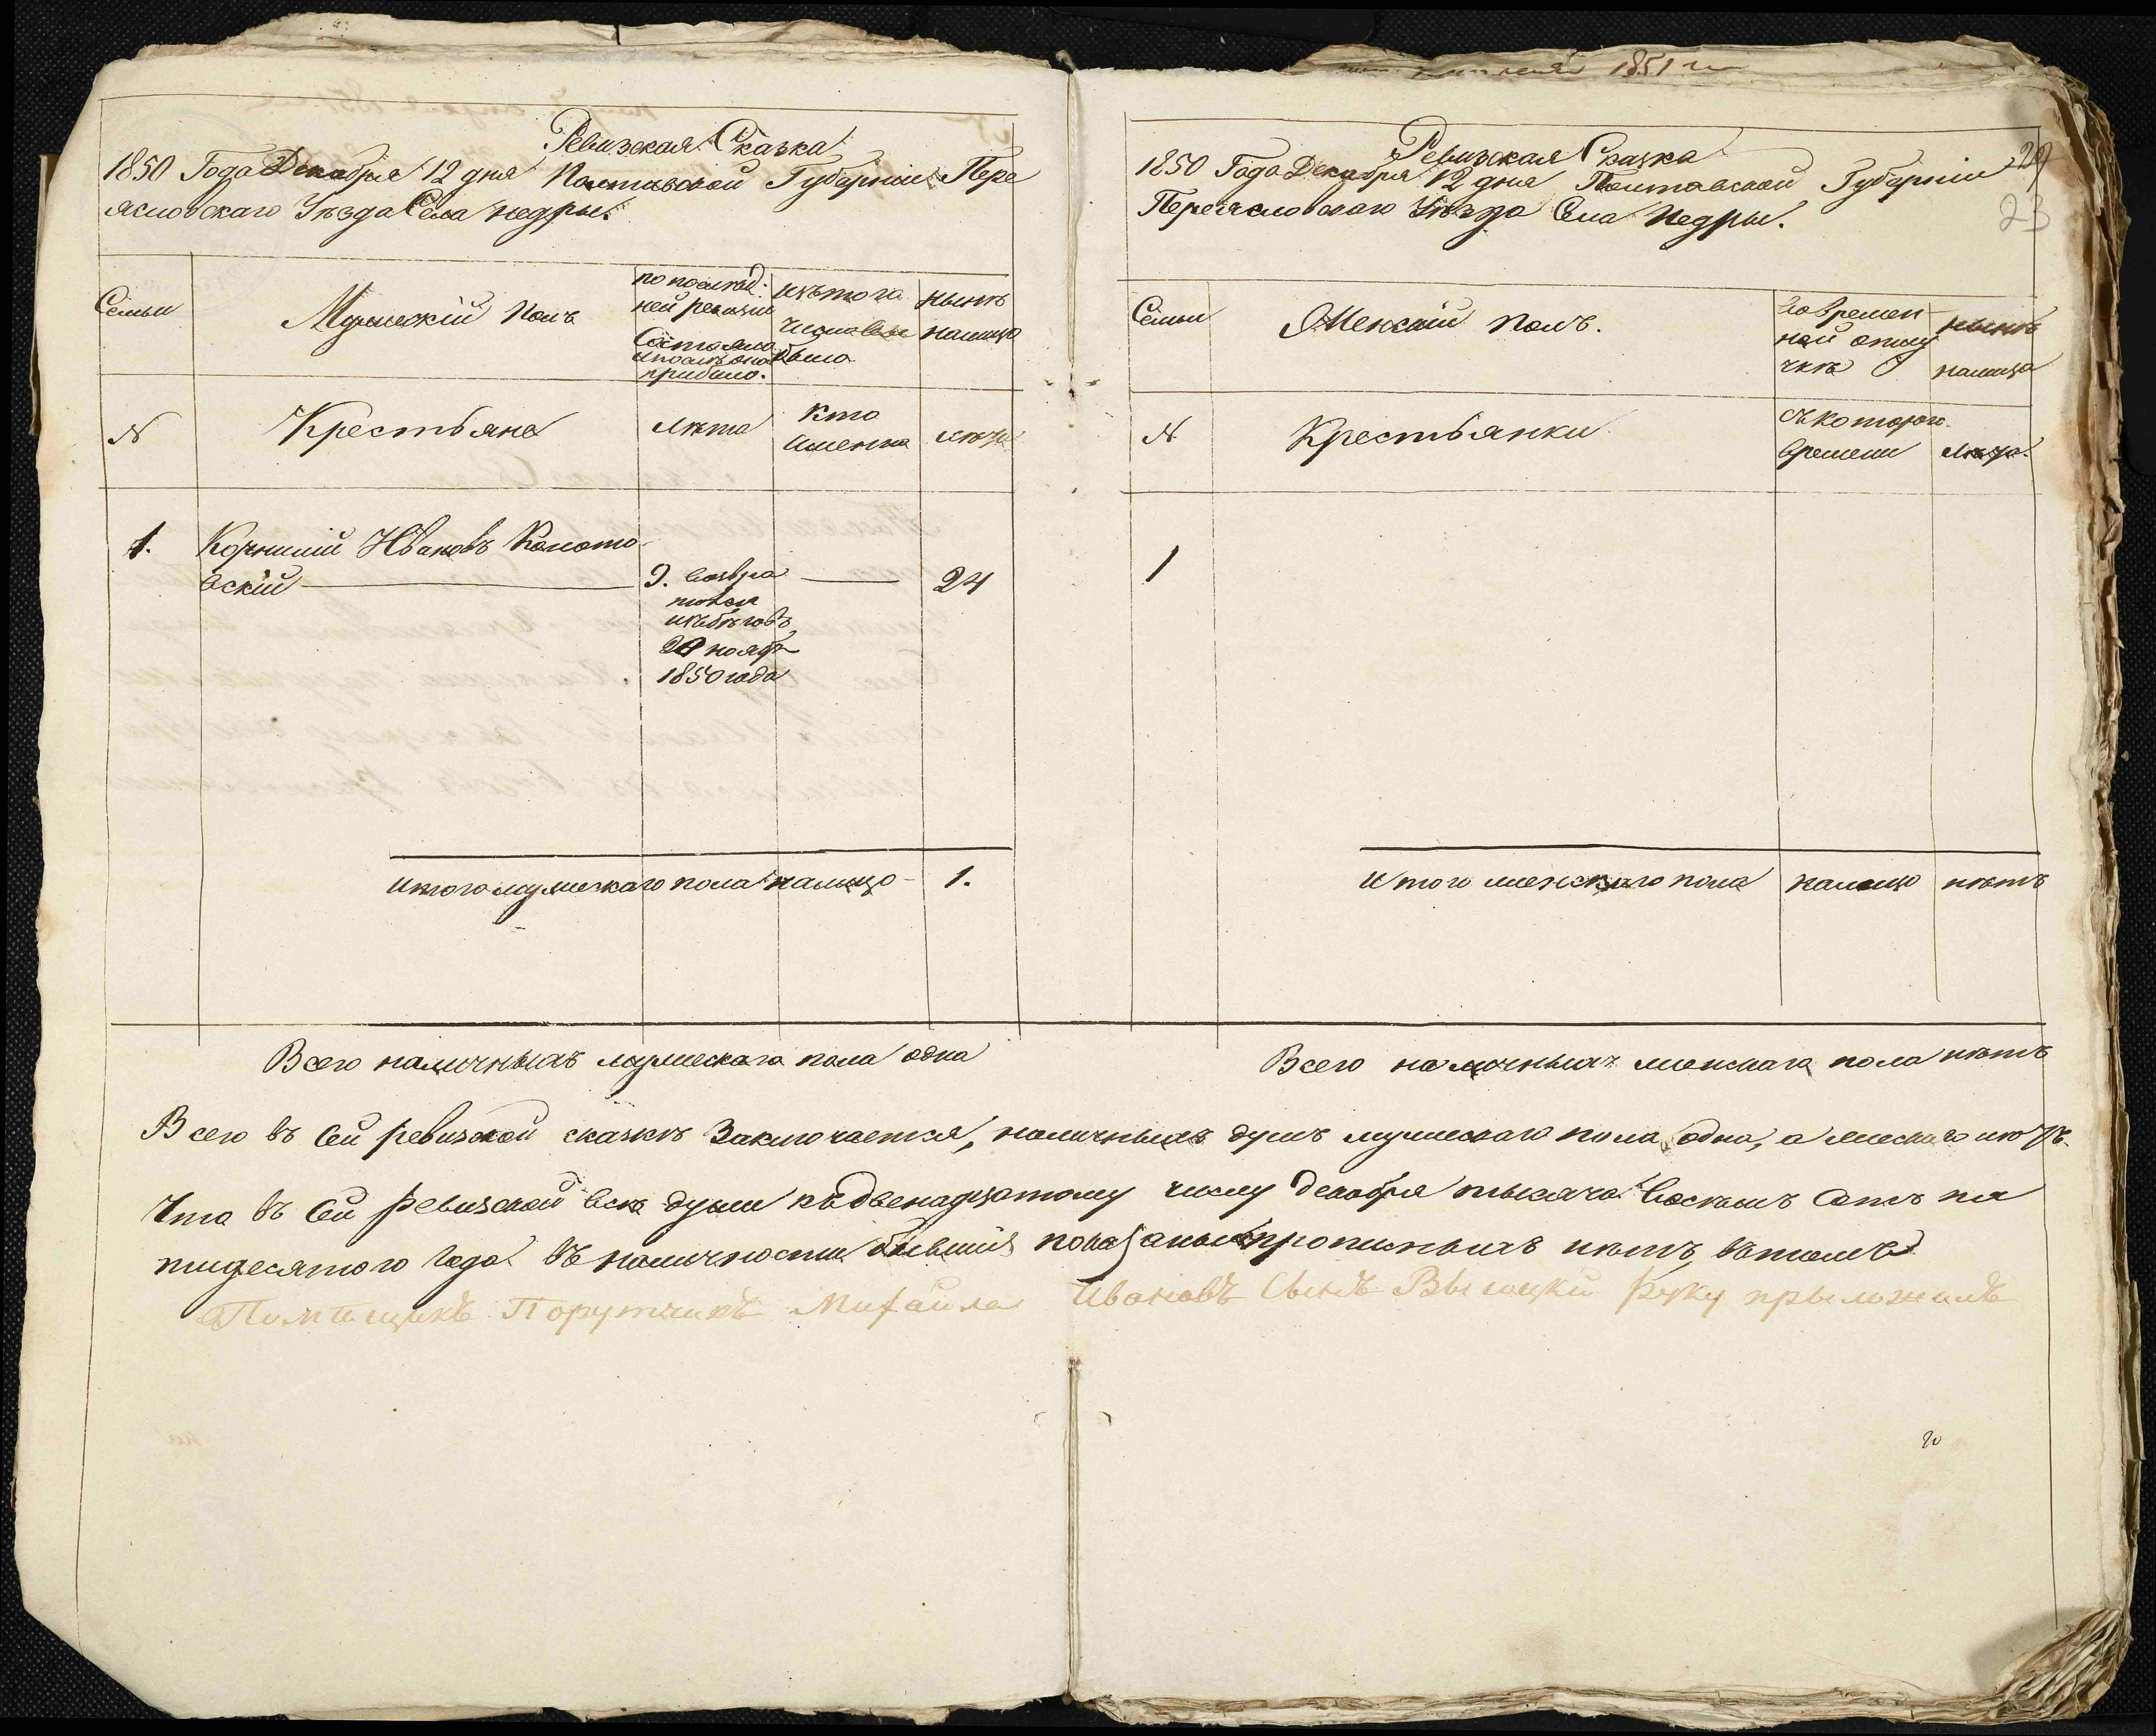 Ревизская Сказка
1850 Года Декабря 12 дня Полтавской Губернии Пере
яславскаго Уезда Села Недры.
Семьи
Мужеский Полъ
по послед-
ней ревизии
Состояло
и после оной
прибыло.
Изъ того
числа
было
ныне
налицо
№
Крестьяне
Лета
Кто
именно
лета
1.
Корнилий Ивановъ
вский
9. Возвра
тився
изъ беговъ
20 нояб
1850 года
24
Итого мужескаго пола налицо
1.
Всего наличныхъ мужескаго пола одна
1851
Ревизская Сказка
1850 Года Декабря 12 дня Полтавской Губернии
Переяславскаго Уезда Села Недры.
29
23
Семьи
Женский полъ.
Во времен
ной отлу
чке
ныне
налицо
№
Крестьянки
Съ котораго
времени
Лета.
1
Итого женскаго пола налицо нетъ
Всего наличныхъ женскаго пола нетъ
Всего въ сей ревизской сказке Заключается, наличныхъ душъ мужескаго пола одна, а женскаго нетъ.
Что въ сей ревизской все души къ двенадцатому числу декабря тысяча Восемь Сотъ пя
тидесятого года въ наличности бывший показаны и прописныхъ нетъ, въ томъ
Помещикъ Порутчикъ Михайла Ивановъ Сынъ Высоцкий руку прыложилъ